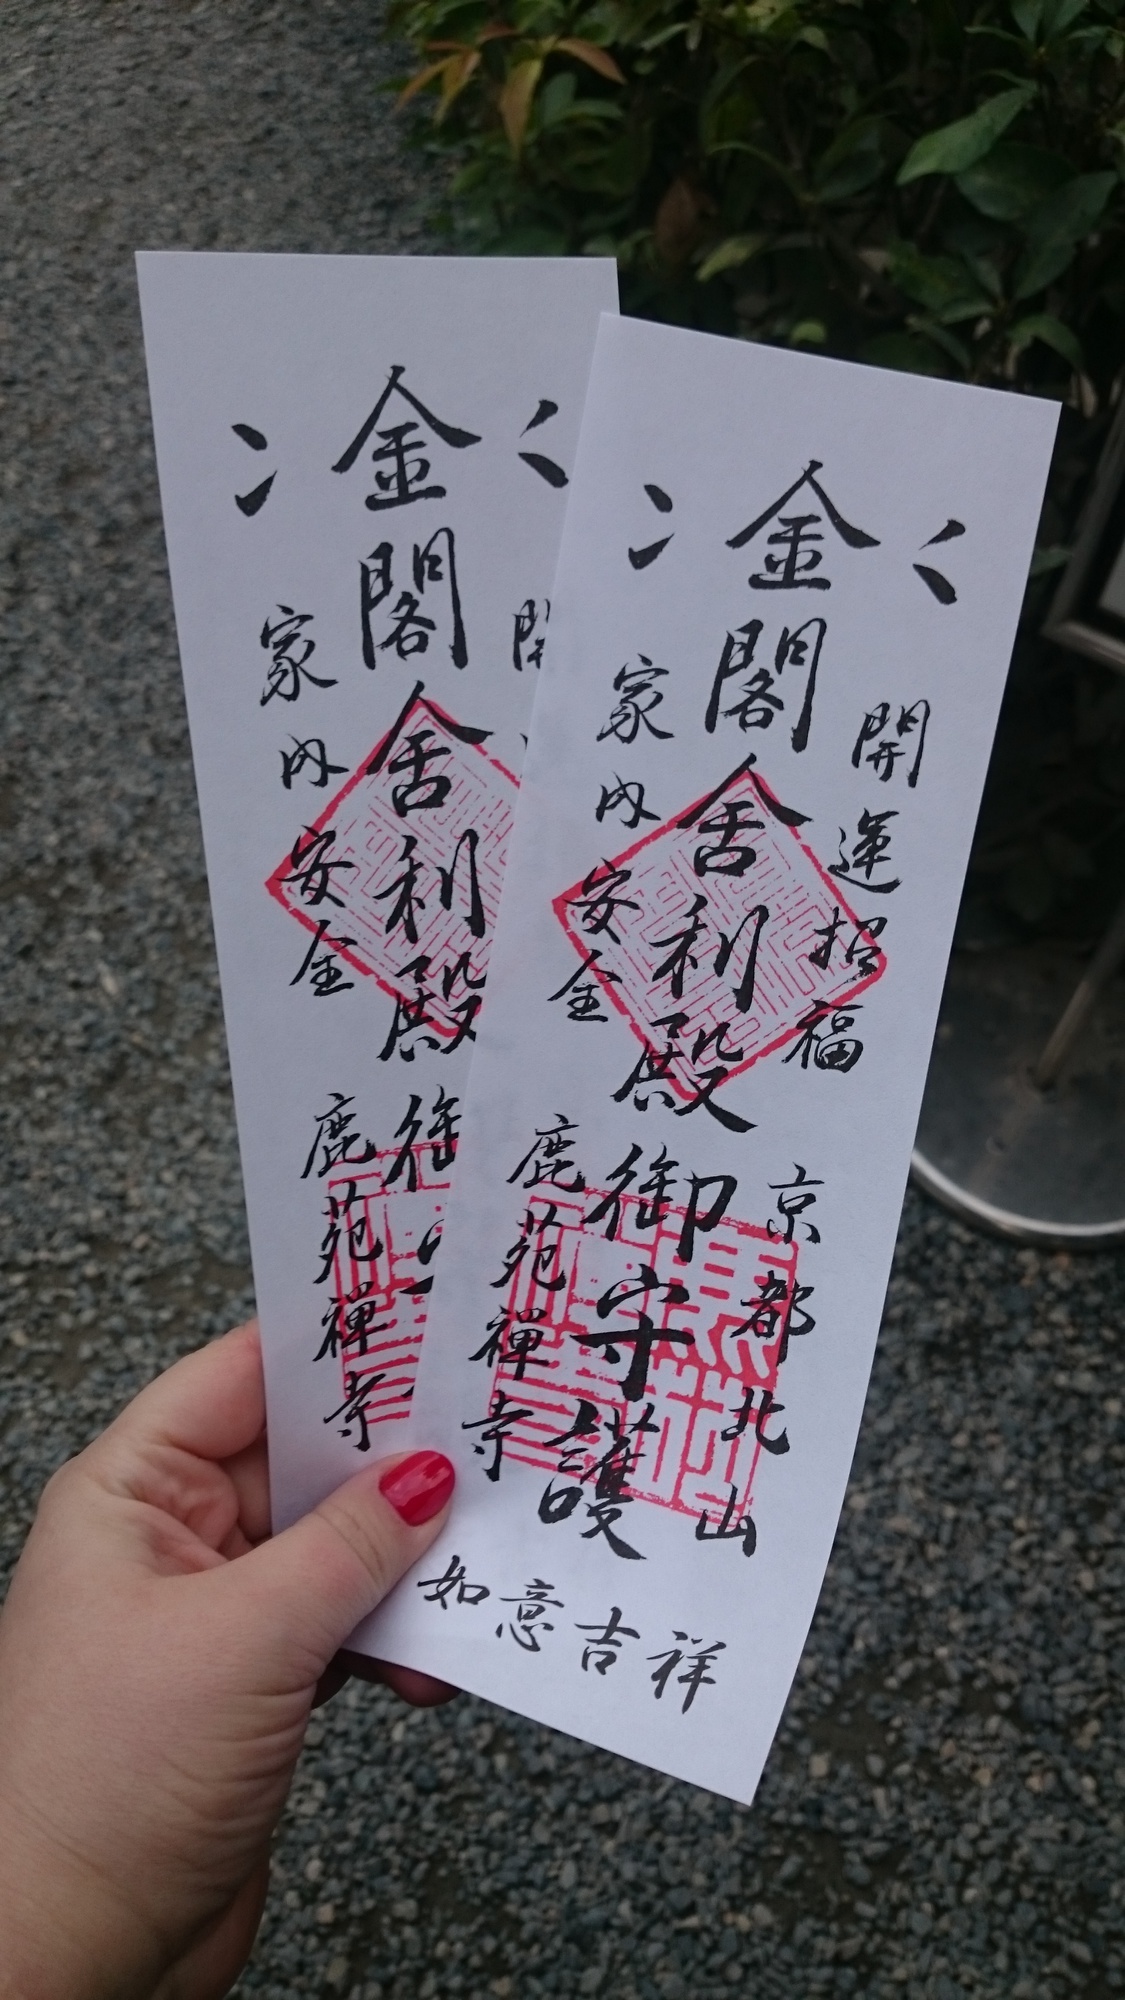 金閣舎利殿御守護
開運招福
家内安全
京都北山
鹿苑禅寺
如意吉祥
金閣舎利殿
家内安全
鹿苑禅寺